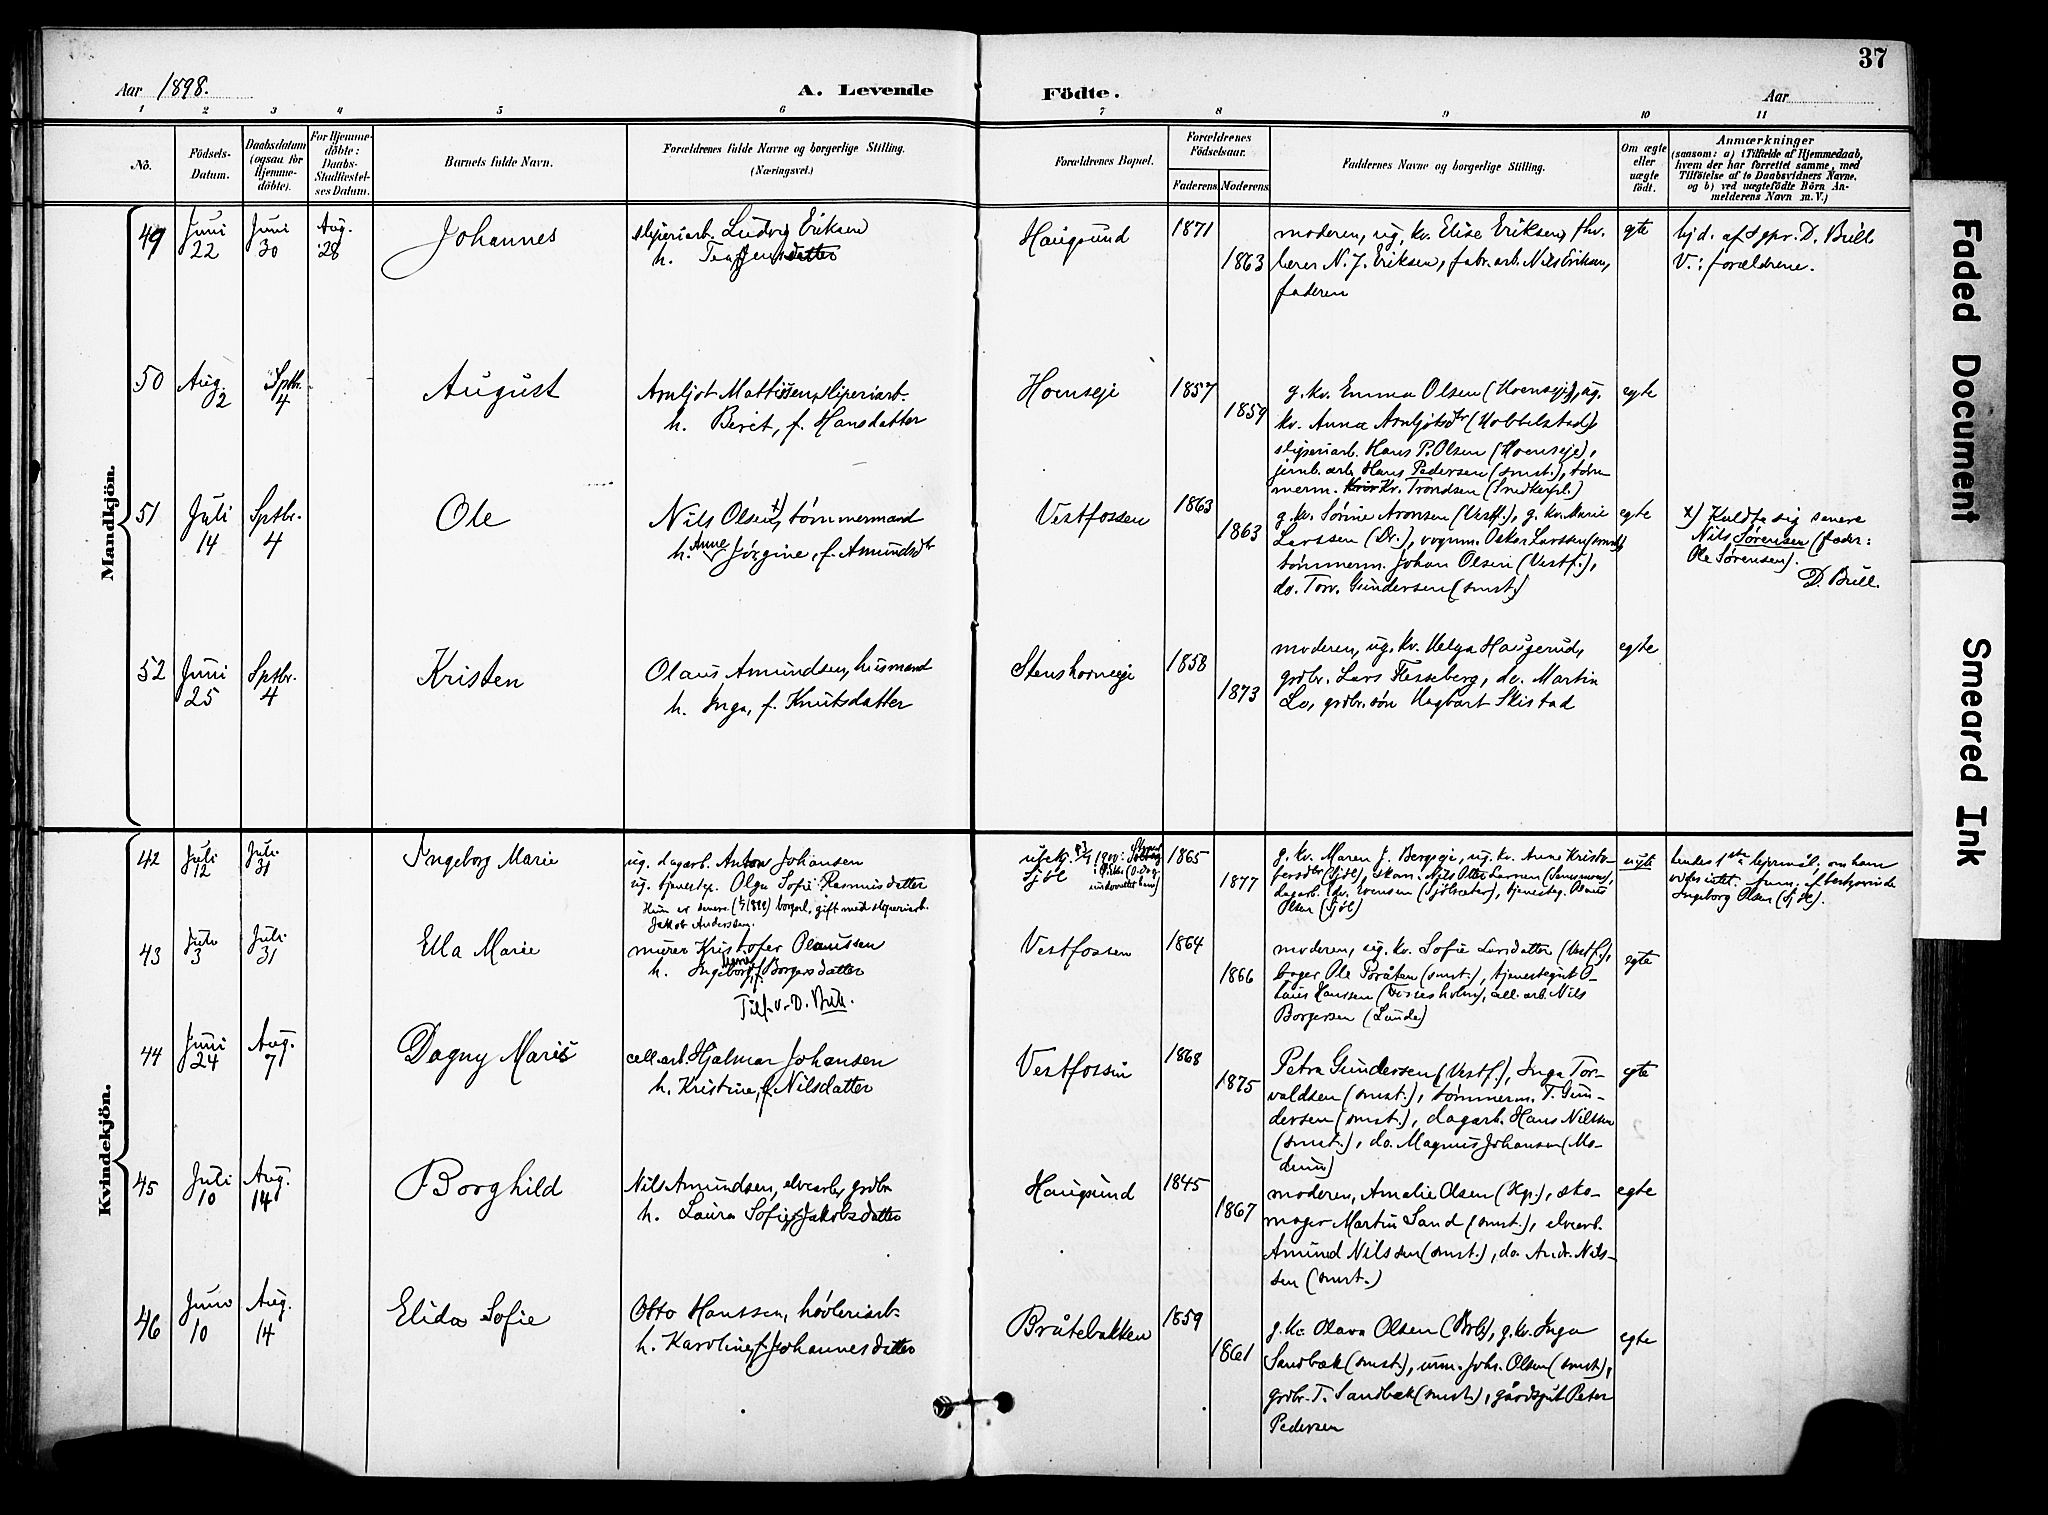 37
Aar 1898.
A. Levende
Födte.
Aar
1 2 3 4 5 6 7 8 9 10 11
No.
Födsels-
Datum.
Daabsdatum
(ogsaa for
Hjemme-
döbte).
For Hjemme-
döbte:
Daabs-
Stadfæstel-
ses Datum.
Barnets fulde Navn.
Forældrenes fulde Navne og borgerlige Stilling.
(Næringsvei.)
Forældrenes Bopæl.
Forældrenes
Födselsaar.
Faderens
Moderens
Faddernes Navne og borgerlige Stilling.
Om ægte
eller
uægte
födt.
Anmærkninger
(saasom: a) i Tilfælde af Hjemmedaab,
hvem der har forrettet samme, med
Tilföielse af to Daabsvidners Navne,
og b) ved uægtefödte Börn An-
melderens Navn m. V.)
Mandkjön.
49
Juni
22
Juni
30
Aug.
28
Johannes
sliperiarb. Ludvig Eriksen
h. Tea Jensdatter
Haugsund
1871
1863
moderen, ug. kv. Elise Eriksen, fhv.
lærer N. J. Eriksen, fabr. arb. Nils Eriksen,
faderen
egte
hjd. af sgpr. D. Bull.
V.: forældrene.
50
Aug.
2
Sptbr.
4
August
Arnljot Mathisen, sliperiarb.
h. Berit, f. Hansdatter
Hoenseje
1857
1859
g. kv. Emma Olsen (Hoenseje), ug.
kv. Anna Arnljotsdr (Hobbelstad),
sliperiarb. Hans P. Olsen (Hoenseje),
jernb. arb. Hans Pedersen (smst.), tøm-
merm. Kv. Trondsen (Snedkerpl.)
egte
51
Juli
14
Sptbr.
4
Ole
Nils Olsen, x) tømmermand
h. Anne Jørgine, f. Amundsdr
Vestfossen
1863
1863
g. kv. Sørine Aronsen (Vestf.), g. kv. Marie
Larssen (Dr.), vognm. Oskar Larssen (smst.)
tømmerm. Johan Olsen (Vestf.),
do. Torv. Gundersen (smst.)
egte
x) Kaldte sig senere
Nils Sørensen (fader:
Ole Sørensen).
D. Bull.
52
Juni
25
Sptbr.
4
Kristen
Olaus Amundsen, husmand
h. Inga, f. Knutsdatter
Stenshorneje
1858
1873
moderen, ug. kv. Helga Haugerud,
grdbr. Lars Flesseberg, do. Martin
Lo, grdbr. søn Hagbart Skistad
egte
Kvindekjön.
42
Juli
12
Juli
31
Ingeborg Marie
ug. dagarb. Anton Johansen
ug. tjenestep. Olga Sofie Rasmusdatter
Hun er senere borgerl. gift med sliperiarb.
Jakob Andersen.
Sjøl
1865
1877
g. kv. Maren J. Bergseje, ug. kv. Anne Kristo-
fersdtr (Sjøl), skom. Nils Otto Larsen
dagarb. Edv. Evensen (Sjølsæter), tjenesteg. Osvald
Olsen (Sjøl)
uegte
hendes 1ste lejermål, om ham
vides intet. Anm. af bestyrerinde
Ingeborg Olsen (Sjøl).
43
Juli
3
Juli
31
Ella Marie
murer Kristofer Olaussen
h. Ingeborg, f. Borgersdatter
Tilf. v. D. Bull.
Vestfossen
1864
1866
moderen, ug. kv. Sofie Larsdatter (Vestf.),
bager Ole Bråten (smst.), tjenestegut O-
laus Hanssen (Fossesholm), cell. arb. Nils
Borgersen (Lunde)
egte
44
Juni
24
Aug.
7
Dagny Marie
cell. arb. Hjalmar Johansen
h. Kristine, f. Nilsdatter
Vestfossen
1868
1875
Petra Gundersen (Vestf.), Inga Tor-
valdsen (smst.), tømmerm. T. Gun-
dersen (smst.), dagarb. Hans Nilssen
(smst.), do. Magnus Johansen (Mo-
dum)
egte
45
Juli
10
Aug.
14
Borghild
Nils Amundsen, elvearb., grdbr.
h. Laura Sofie, f. Jakobsdatter
Haugsund
1845
1867
moderen, Amalie Olsen (Hp.), sko-
mager Martin Sand (smst.), elvearb.
Amund Nilssen (smst.), do. Andr. Nils-
sen (smst.)
egte
46
Juni
10
Aug.
14
Elida Sofie
Otto Hanssen, høvleriarb.
h. Karoline, f. Johannesdatter
Bråtebakken
1859
1861
g. kv. Olava Olsen (Brb.), g. kv. Inga
Sandbæk (smst.), urm. Johs. Olsen (smst.),
grdbr. T. Sandbæk (smst.), gårdsgut Peter
Pedersen
egte
Faded Document
Smeared Ink